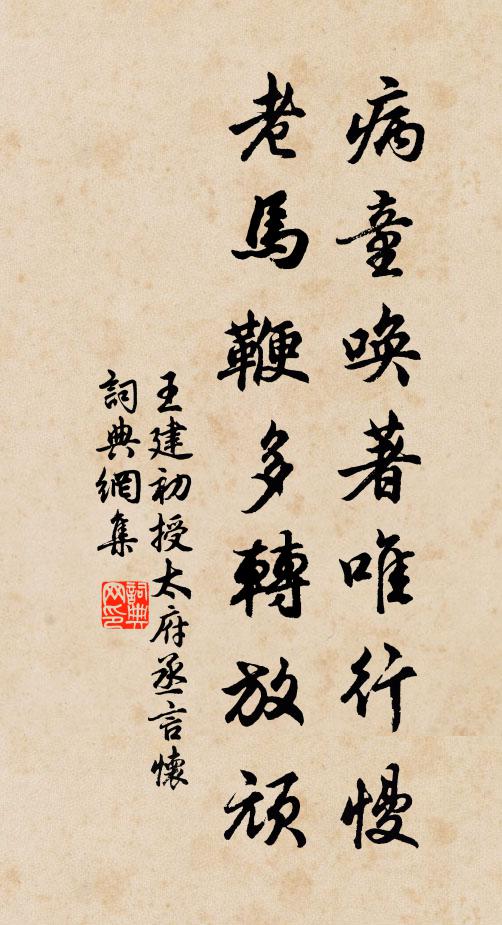 病童唤著唯行慢
老馬鞭多轉放頑
王建初授太府丞言懷
詞典網集
詞典网印